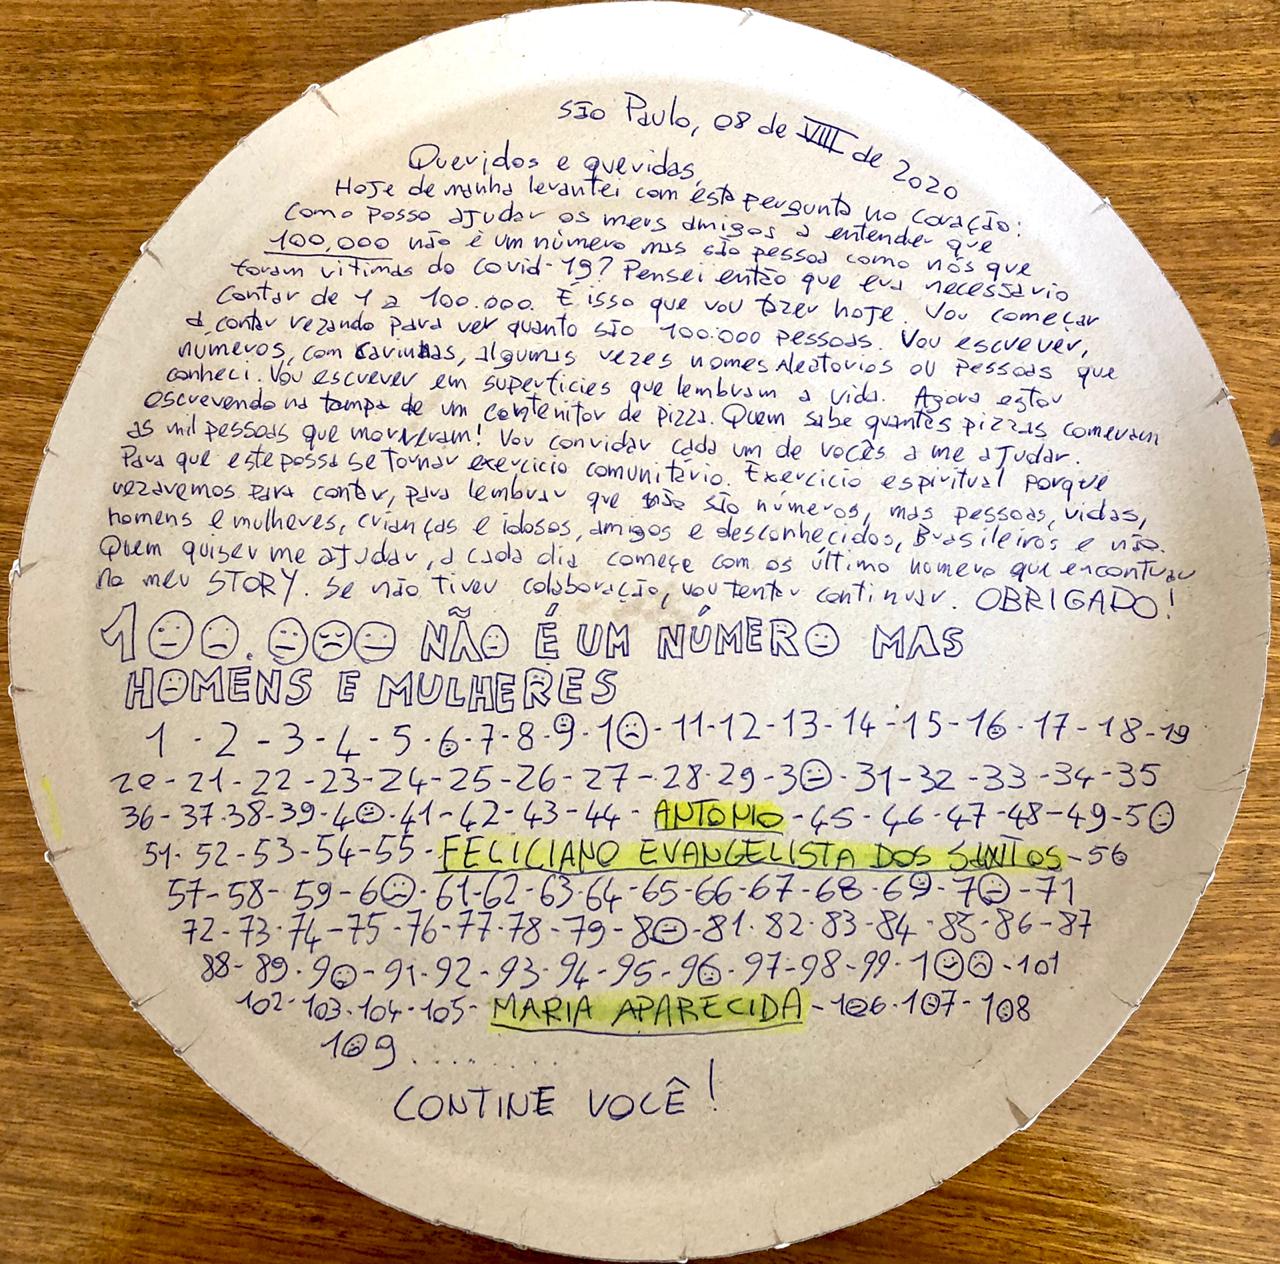 São Paulo, 08 de VIII de 2020
Queridos e queridas,
Hoje de manha levantei com esta pergunta no coração:
Como posso ajudar os meus amigos a entender que
100,000 não é um número mas são pessoa como nós que
foram vitimas do covid-19? Pensei então que era necessario
contar de 1 a 100.000. E isso que vou fazer hoje. Vou começar
a contar rezando para ver quanto são 100.000 pessoas. Vou escrever,
numeros, com carinhas, algumas vezes nomes Aleatorios ou pessoas que
conheci. Vou escrever em superficies que lembram a vida. Agora estou
escrevendo na tampa de um contenitor de pizza. Quem sabe quantas pizzas comeram
as mil pessoas que morreram! Vou convidar cada um de vocês a me ajudar.
Para que este possa se tornar exercicio comunitário. Exercicio espiritual porque
rezaremos para contar, para lembrar que não são números, mas pessoas, vidas,
homens e mulheres, crianças e idosos, amigos e desconhecidos, Brasileiros e não.
Quem quiser me ajudar, a cada dia começe com os último numero que encontrar
no meu STORY. Se não tiver colaboração, vou tentar continuar. OBRIGADO!
100.000 NÃO É UM NÚMERO MAS
HOMENS E MULHERES
1 - 2 - 3 - 4 - 5 - 6 - 7 - 8 - 9 - 10 - 11 - 12 - 13 - 14 - 15 - 16 - 17 - 18 - 19
20 - 21 - 22 - 23 - 24 - 25 - 26 - 27 - 28 - 29 - 30 - 31 - 32 - 33 - 34 - 35
36 - 37 - 38 - 39 - 40 - 41 - 42 - 43 - 44 - ANTONIO - 45 - 46 - 47 - 48 - 49 - 50
51 - 52 - 53 - 54 - 55 - FELICIANO EVANGELISTA DOS SANTOS - 56
57 - 58 - 59 - 60 - 61 - 62 - 63 - 64 - 65 - 66 - 67 - 68 - 69 - 70 - 71
72 - 73 - 74 - 75 - 76 - 77 - 78 - 79 - 80 - 81 - 82 - 83 - 84 - 85 - 86 - 87
88 - 89 - 90 - 91 - 92 - 93 - 94 - 95 - 96 - 97 - 98 - 99 - 100 - 101
102 - 103 - 104 - 105 - MARIA APARECIDA - 106 - 107 - 108
109 ........
CONTINE VOCÊ!